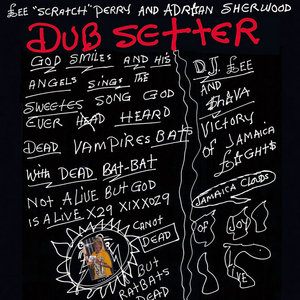 £EE "SCRATCH" PERRY AND ADRIAN SHERWOOD
DUB SETTER
GOD SMILES AND HIS
ANGELS SINGS THE
SWEETES SONG GOD
EVER HEAD HEARD
DEAD VAMPIRES BATS
WITH DEAD BAT-BAT
NOT ALIVE BUT GOD
IS ALIVE X29 XIXXOZ9
CANOT
DEAD
BUT
RATBATS
DEAD
D.J. £EE
AND
SHAVA
VICTORY
OF JAMAICA
£IGHTS
JAMAICA CLOUDS
OF JOY
LIVE